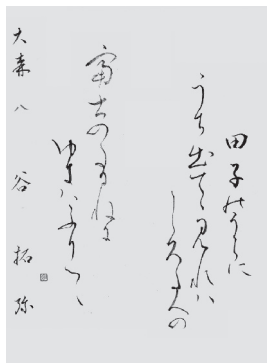 田子のうらに
うち出て見れハ
しろたへの
富士のたかねに
ゆきハふりつゝ
大森八 谷 拓弥